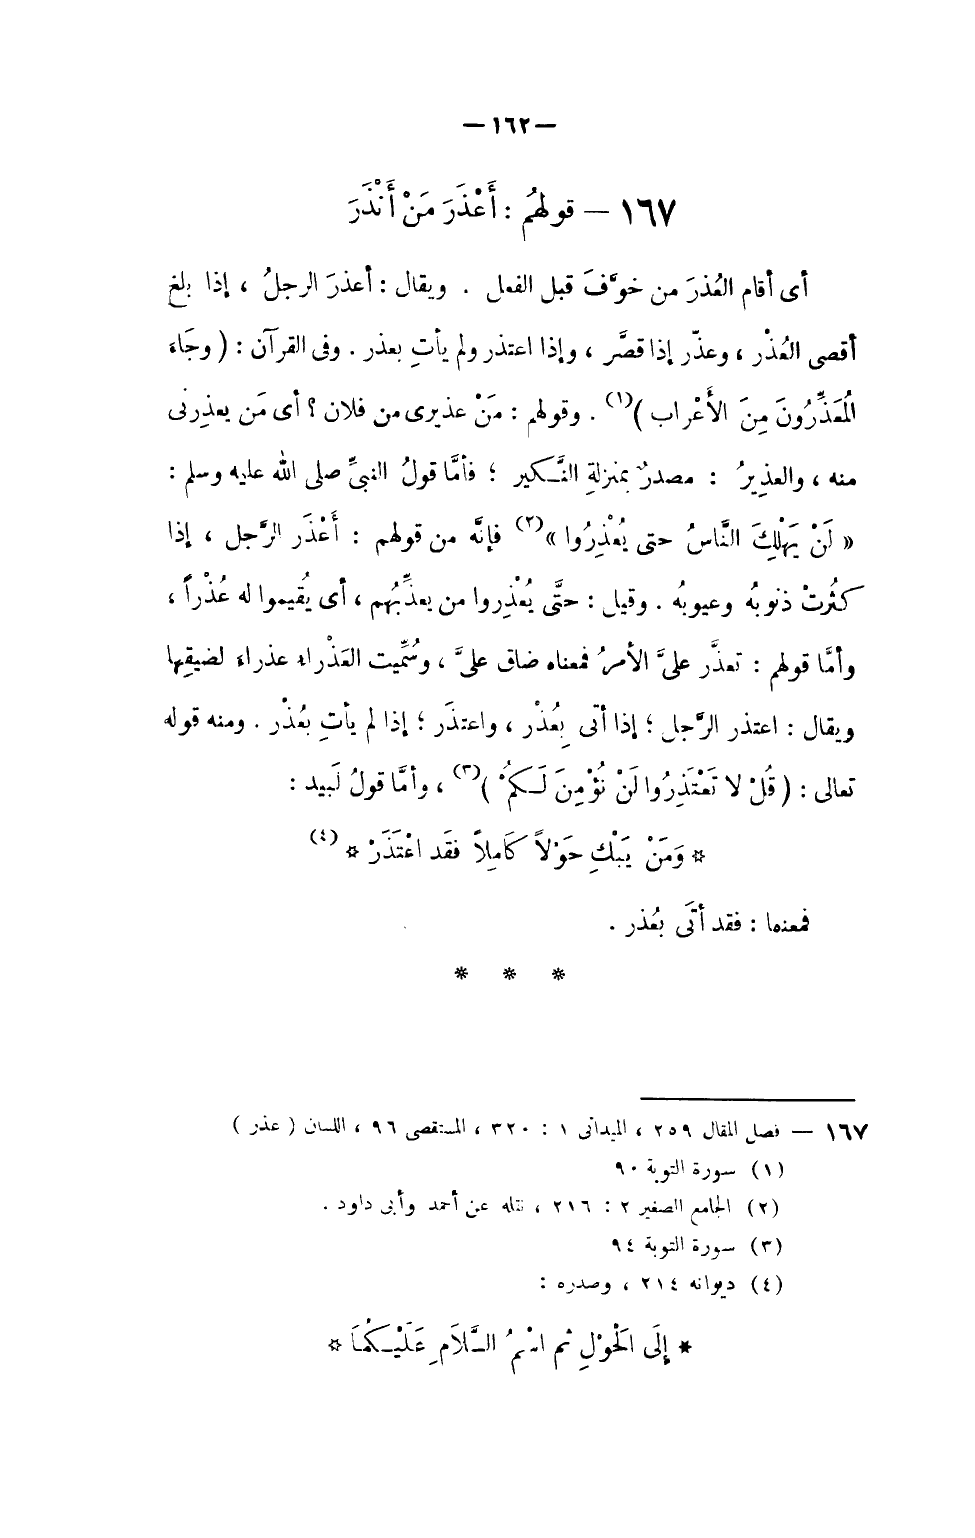 — ١٦٢ —
١٦٧ — قولهُم : أَعْذَرَ مَنْ أَنْذَرَ
أى أقام العُذرَ من خوَّفَ قبل الفعل . ويقال : أعذرَ الرجلُ ، إذا بلغ
أقصى العُذْر ، وعذّر إذا قصَّر ، وإذا اعتذر ولم يأتِ بعذر . وفى القرآن : ( وجَاءَ
الْمُعَذِّرُونَ مِنَ الأَعْراب )(١) . وقولهم : مَنْ عذيرى من فلان ؟ أى مَن يعذِرنى
منه ، والعذِيرُ : مصدرٌ بمنزلةِ النَّكير ؛ فأمَّا قولُ النبىِّ صلى الله عليه وسلم :
« لَنْ يَهْلِكَ النَّاسُ حتى يُعْذِرُوا »(٢) فإنَّه من قولهم : أَعْذَر الرَّجل ، إذا
كثُرتْ ذنوبُه وعيوبُه . وقيل : حتَّى يُعْذِروا من يعذِّبُهم ، أى يُقيموا له عُذْراً ،
وأمَّا قولهم : تعذَّر علىَّ الأمرُ فمعناه ضاق علىَّ ، وسُمِّيت العَذْراء عذراءَ لضيقِها
ويقال : اعتذر الرَّجل ؛ إذا أتى بِعُذْر ، واعتذَر ؛ إذا لم يأتِ بعُذْر . ومنه قوله
تعالى : ( قُلْ لا تَعْتَذِرُوا لَنْ نُؤْمِنَ لَكمُ )(٣) ، وأمَّا قولُ لَبيد :
* وَمَنْ يَبْكِ حَوْلاً كَامِلاً فقَد اعْتَذَرْ * (٤)
فمعنها : فقد أتَى بعُذر .
* * *
١٦٧ — فصل المقال ٢٥٩ ، الميدانى ١ : ٣٢٠ ، المستقصى ٩٦ ، اللسان ( عذر )
(١) سورة التوبة ٩٠
(٢) الجامع الصغير ٢ : ٢١٦ ، نقله عن أحمد وأبى داود .
(٣) سورة التوبة ٩٤
(٤) ديوانه ٢١٤ ، وصدره :
* إِلَى الحَوْلِ ثم اسْمُ السَّلَامِ عَلَيْكُمَا *